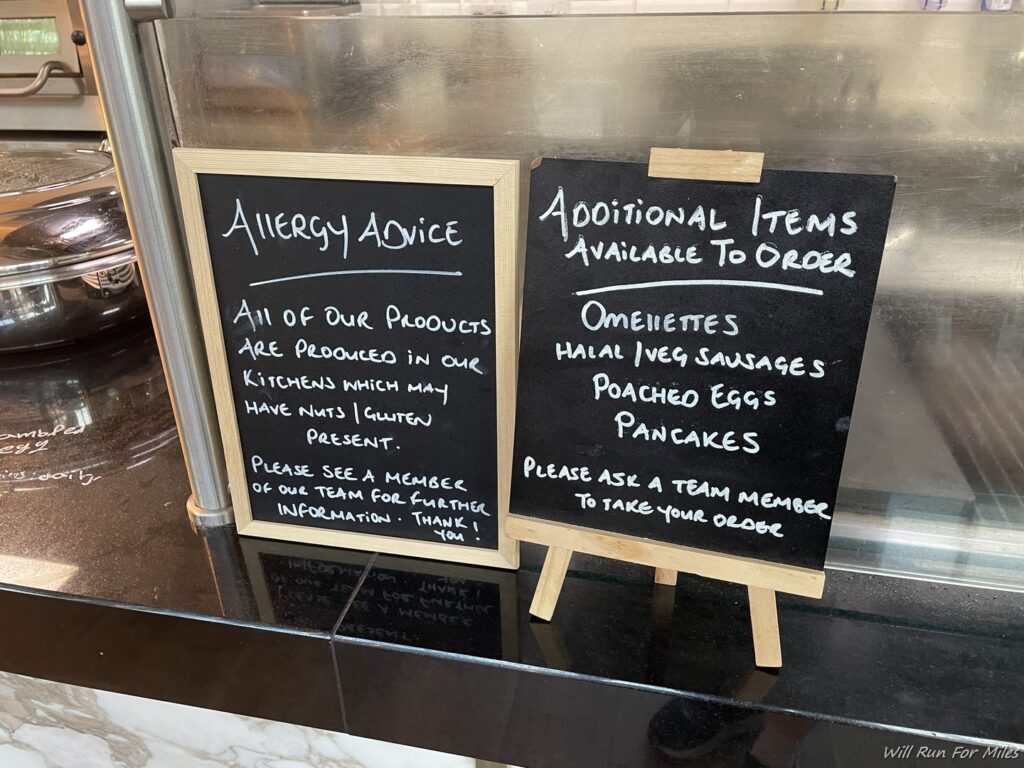 Allergy Advice
All of our products
are produced in our
kitchens which may
have nuts / gluten
present.
Please see a member
of our team for further
information. Thank
you!
Additional Items
Available To Order
Omellettes
Halal / Veg Sausages
Poached Eggs
Pancakes
Please ask a team member
to take your order
egg
Will Run For Miles